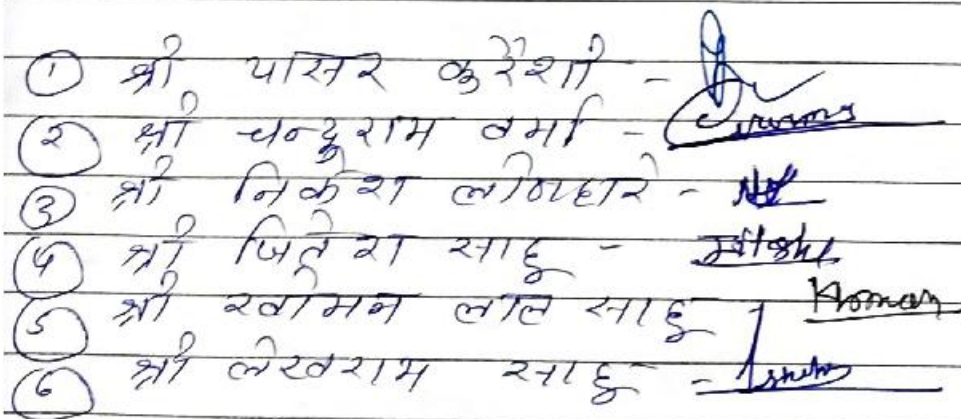 ① श्री यासर कुरैशी -
② श्री चन्दुराम वर्मा -
③ श्री निकेश लोन्हारे -
④ श्री जितेश साहू -
⑤ श्री खोमन लाल साहू - Homan
⑥ श्री लेखराम साहू -